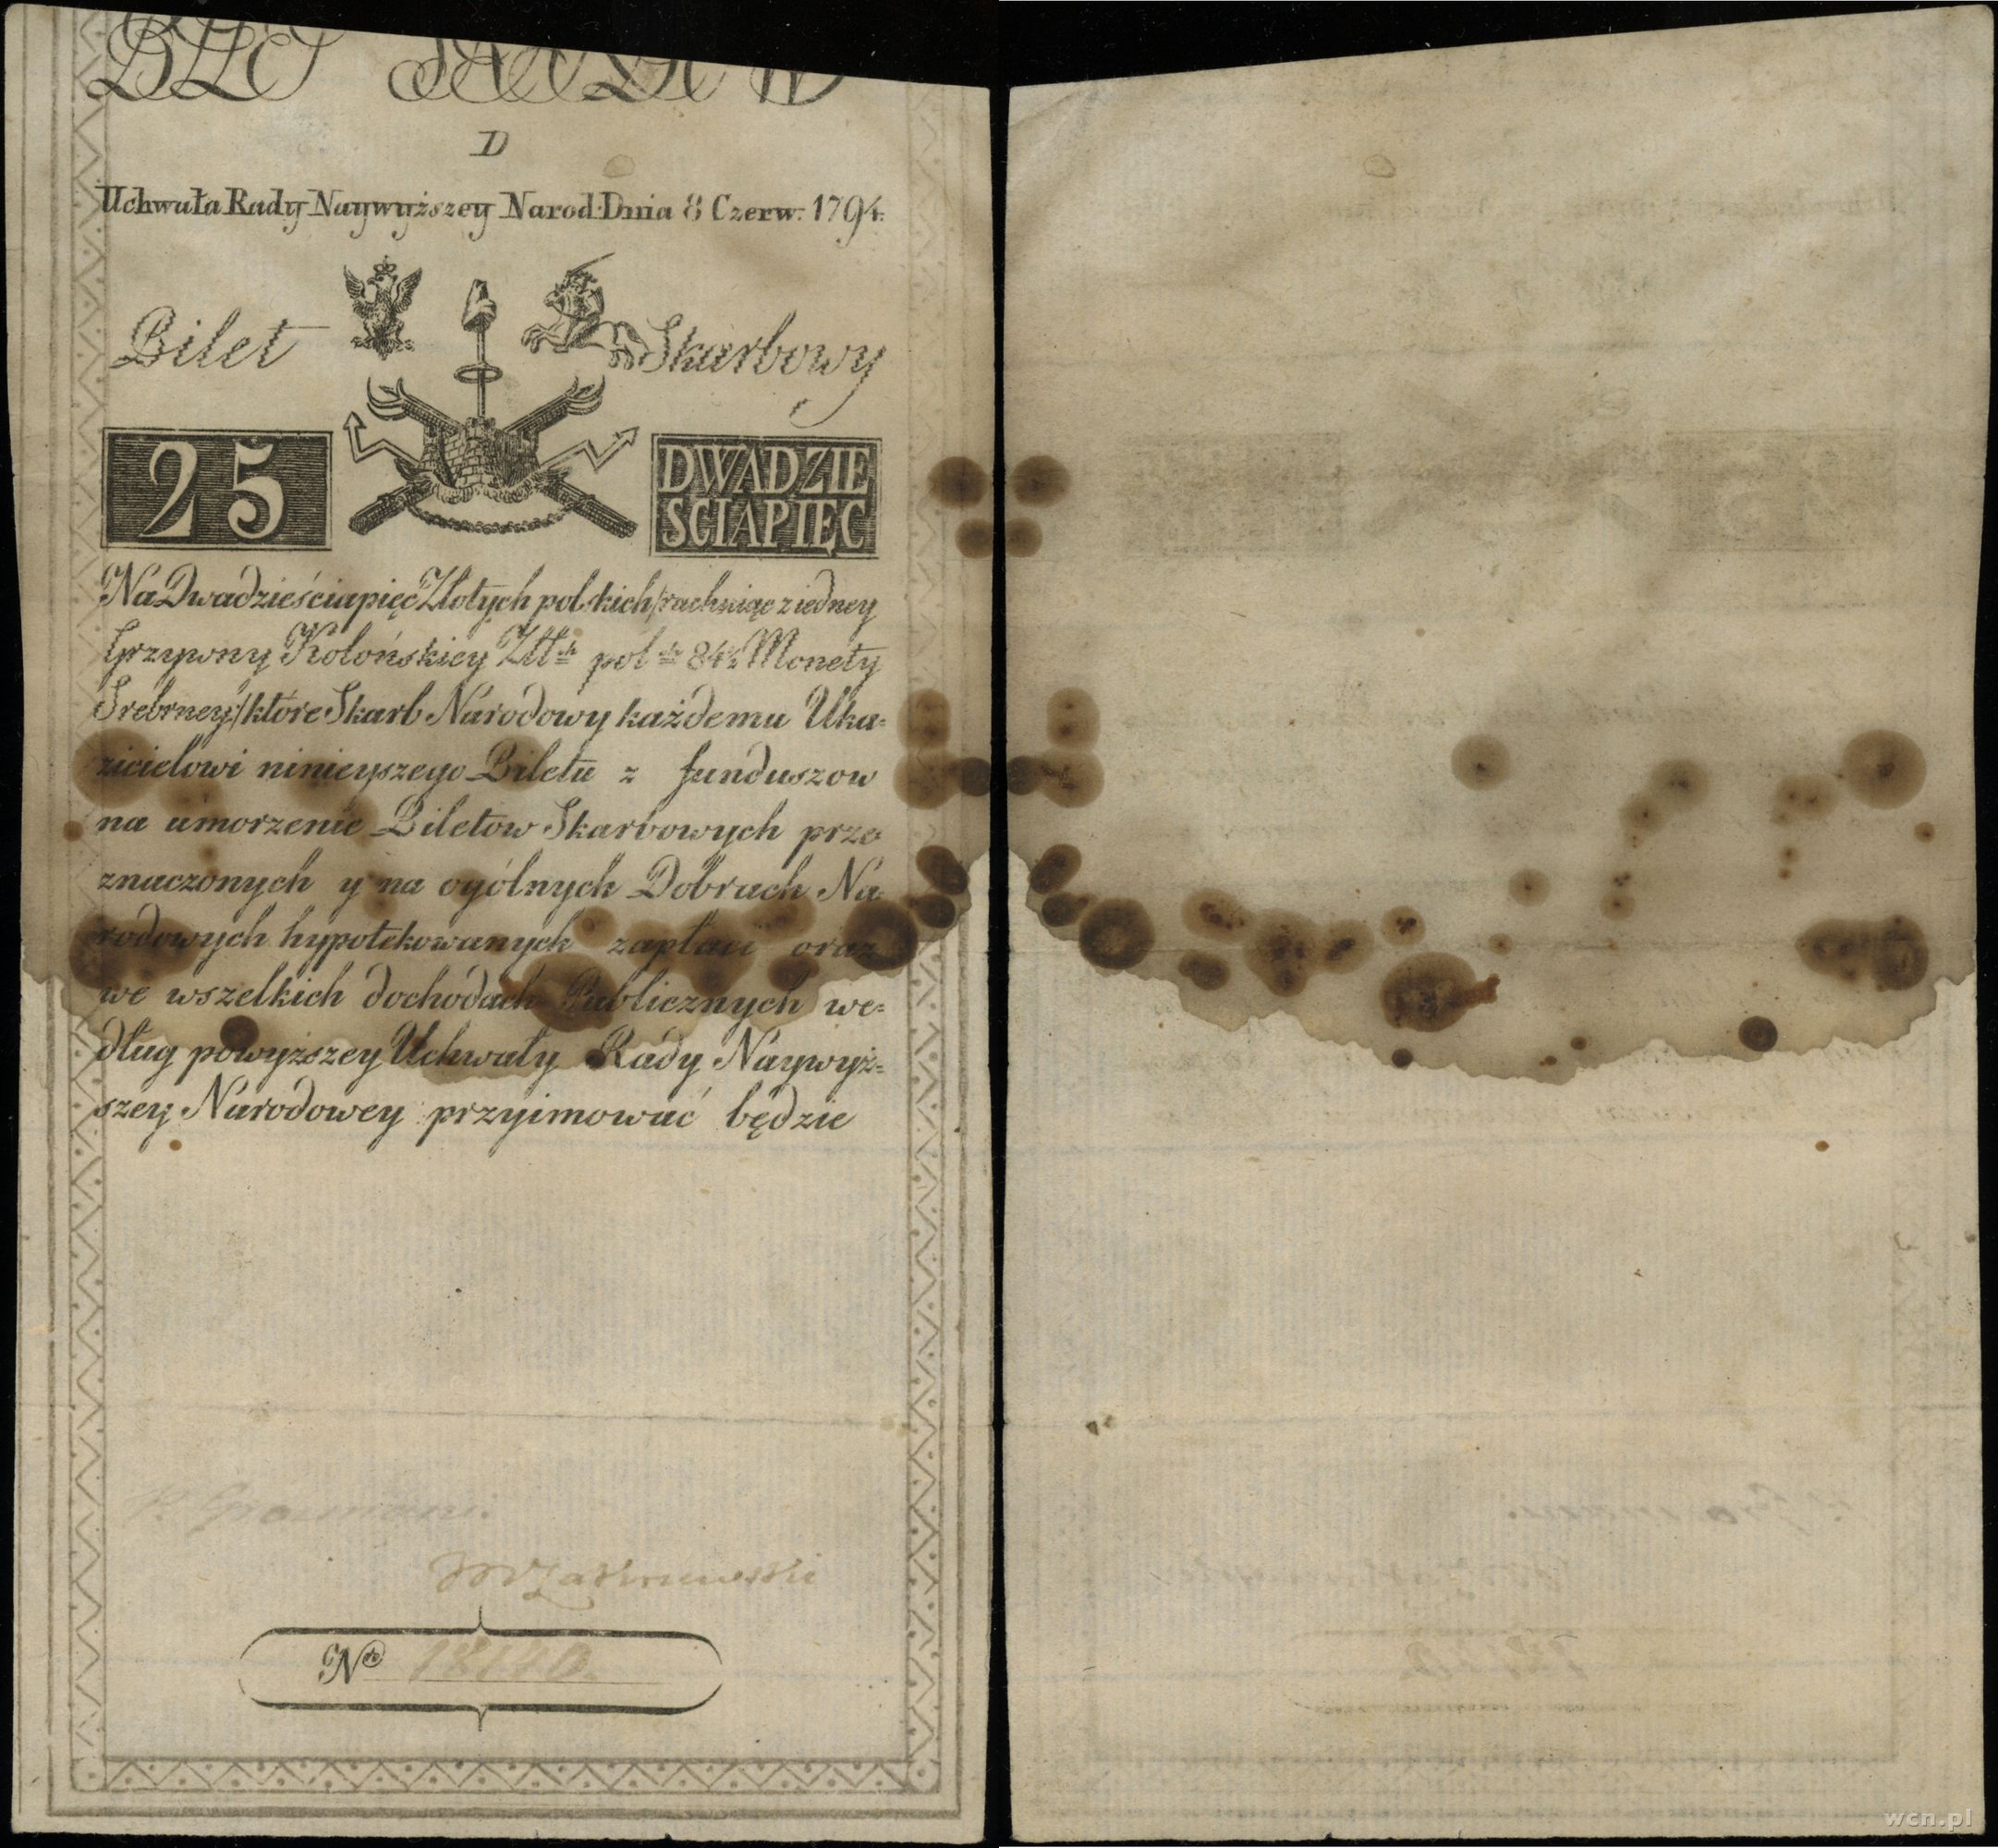 D
Uchwała Rady Naywyższey Narod: Dnia 8 Czerw. 1794.
Bilet Skarbowy
25 DWADZIE
SCIAPIĘC
Na Dwadzieścia pięć Złotych polskich /: rachuiąc z iedney
Grzywny Kolońskiey Złł:ch pol:ch 84½ Monety
Srebrney :/ które Skarb Narodowy każdemu Uka=
zicielowi ninieyszego Biletu z funduszow
na umorzenie Biletow Skarbowych prze=
znaczonych y na ogólnych Dobrach Na=
rodowych hypotekowanych zapłaci oraz
we wszelkich dochodach Publicznych we=
dług powyższey Uchwały Rady Naywyż=
szey Narodowey przyimować będzie
N:ro 18140.
wcn.pl